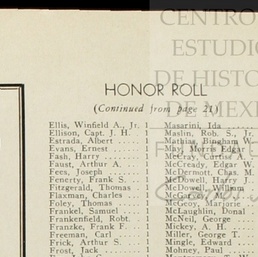 CENTRO
ESTUDIO
DE HISTO
DE MEXI
HONOR ROLL
(Continued from page 21)
Ellis, Winfield A., Jr. 1
Ellison, Capt. J. H. 1
Estrada, Albert ..... 1
Evans, Ernest ...... 1
Fash, Harry ........ 1
Faust, Arthur A. ... 1
Fees, Joseph ....... 1
Fenerty, Frank S. .. 1
Fitzgerald, Thomas . 1
Flaxman, Charles ... 1
Foley, Thomas ...... 1
Frankel, Samuel .... 1
Frankenfield, Robt. 1
Franzke, Frank F. .. 1
Freeman, Carl ...... 1
Frick, Arthur S. ... 1
Frost, Jack ........ 1
Masarini, Ida
Maslin, Rob. S., Jr.
Mathias, Bingham W.
May, Morris Edgar
McCray, Curtiss A.
McCready, Edgar W.
McDermott, Chas. M.
McDowell, Harry
McDowell, William
McGeoy, Marjorie
McLaughlin, Donal
McNeil, George
Mickey, A. H.
Miller, George T.
Mingle, Edward
Mohney, Paul